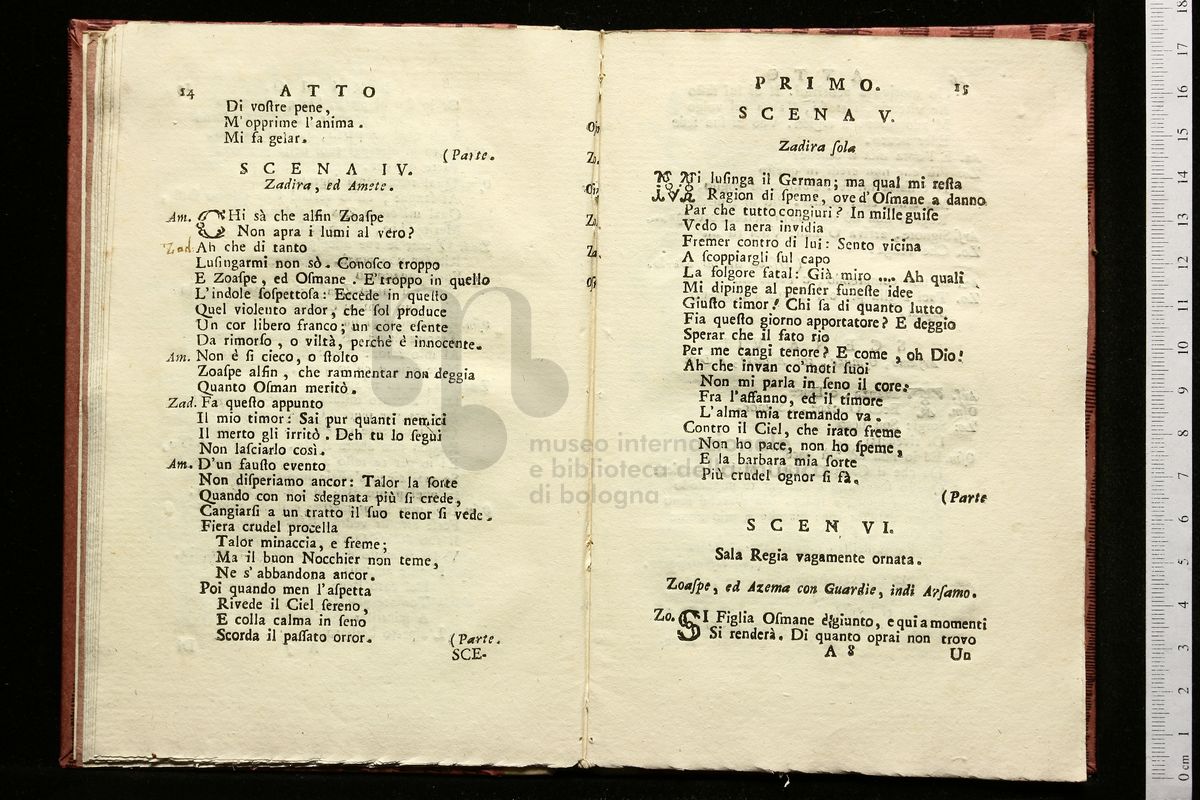 14 ATTO
Di voſtre pene,
M'opprime l'anima.
Mi fa gelar.
(Parte.
SCENA IV.
Zadira, ed Amete.
Am. CHi sà che alfin Zoaſpe
Non apra i lumi al vero?
Zad. Ah che di tanto
Luſingarmi non sò. Conoſco troppo
E Zoaſpe, ed Oſmane. E'troppo in quello
L'indole ſoſpettoſa: Eccede in queſto
Quel violento ardor, che ſol produce
Un cor libero franco; un core eſente
Da rimorſo, o viltà, perchè è innocente.
Am. Non è ſi cieco, o ſtolto
Zoaſpe alfin, che rammentar non deggia
Quanto Oſman meritò.
Zad. Fa queſto appunto
Il mio timor: Sai pur quanti nemici
Il merto gli irritò. Deh tu lo ſegui
Non laſciarlo così.
Am. D'un fauſto evento
Non diſperiamo ancor: Talor la ſorte
Quando con noi sdegnata più ſi crede,
Cangiarſi a un tratto il ſuo tenor ſi vede.
Fiera crudel procella
Talor minaccia, e freme;
Ma il buon Nocchier non teme,
Ne s'abbandona ancor.
Poi quando men l'aſpetta
Rivede il Ciel ſereno,
E colla calma in ſeno
Scorda il paſſato orror.
(Parte.
SCE-
PRIMO. 15
SCENA V.
Zadira ſola
Mi luſinga il German; ma qual mi reſta
Ragion di ſpeme, ove d'Oſmane a danno
Par che tutto congiuri? In mille guiſe
Vedo la nera invidia
Fremer contro di lui: Sento vicina
A ſcoppiargli ſul capo
La folgore fatal: Già miro .... Ah quali
Mi dipinge al penſier funeſte idee
Giuſto timor! Chi ſa di quanto lutto
Fia queſto giorno apportatore? E deggio
Sperar che il fato rio
Per me cangi tenore? E come, oh Dio!
Ah che invan co'moti ſuoi
Non mi parla in ſeno il core:
Fra l'affanno, ed il timore
L'alma mia tremando va.
Contro il Ciel, che irato freme
Non ho pace, non ho ſpeme,
E la barbara mia ſorte
Più crudel ognor ſi fà.
(Parte
SCEN VI.
Sala Regia vagamente ornata.
Zoaſpe, ed Azema con Guardie, indi Arſamo.
Zo. SI Figlia Oſmane è giunto, e qui a momenti
Si renderà. Di quanto oprai non trovo
A 8 Un
museo internazionale
e biblioteca della musica
di bologna